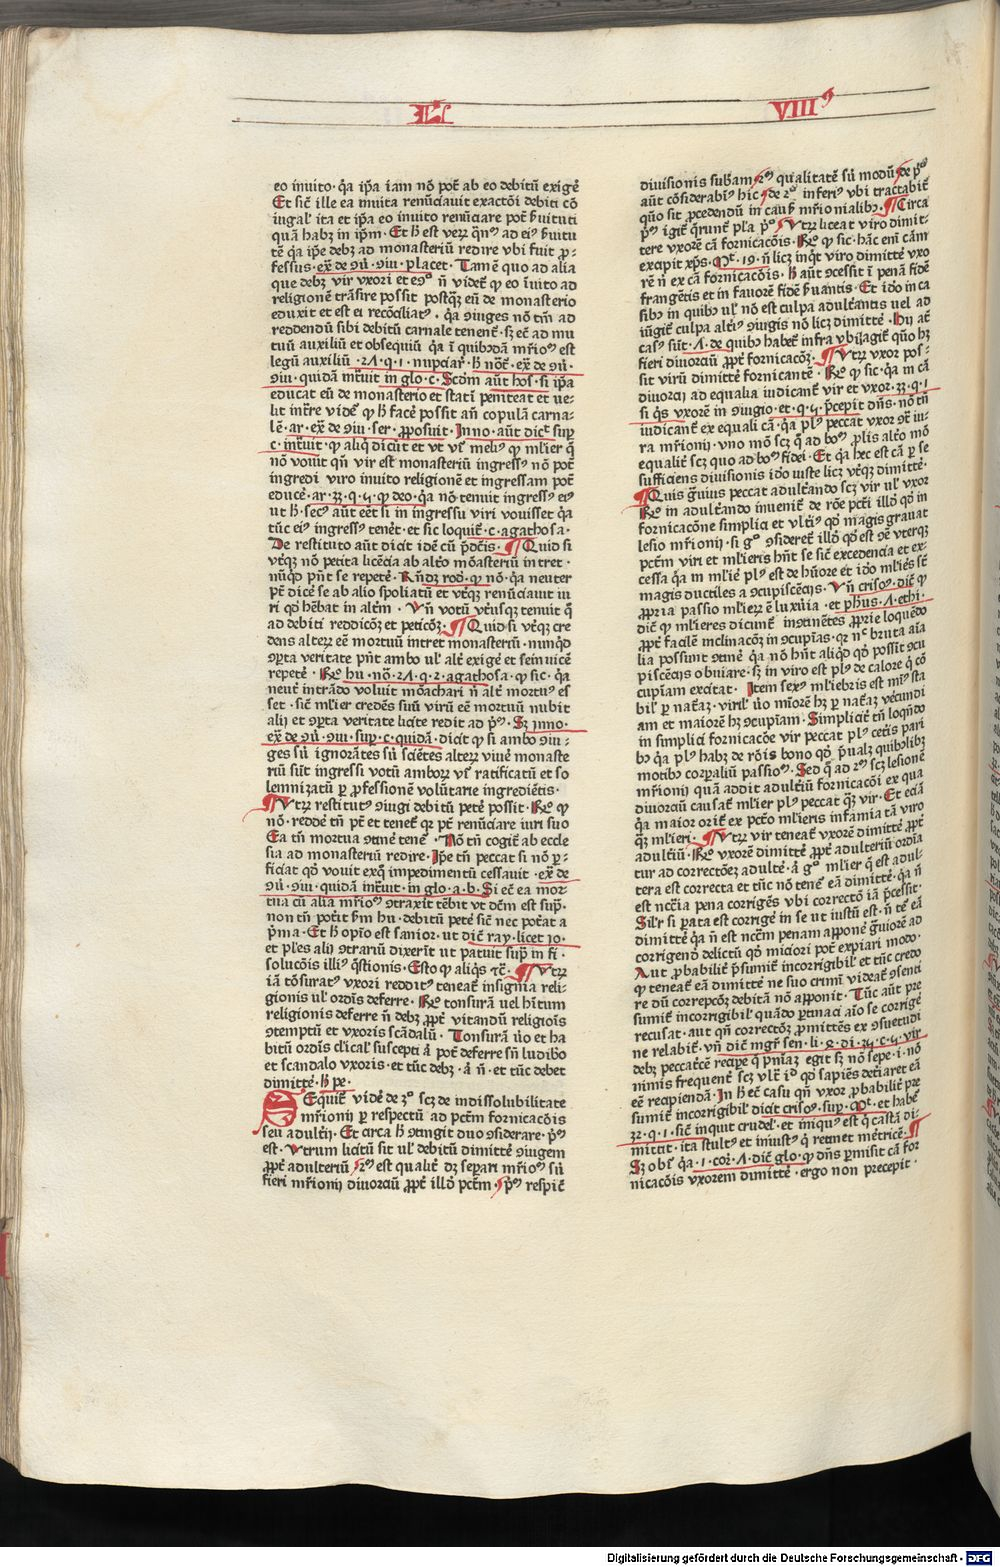 L VIII⁹
eo inuito · q̃a ip̃a iam nō pōt ab eo debitū exigẽ
Et sic̃ ille ea inuita renũciauit exactõi debiti cō
iugal' ita et ip̃a eo inuito renũciare pōt ẞuituti
quã habꝫ in ip̃m · Et ħ est veꝝ q̃n⁹ ad ei⁹ ẞuitu
tẽ q̃a ip̃e debꝫ ad monasteriũ redire vbi fuit ꝓ⸗
fessus · ex̃ de ꝯũ · ꝯiu · placet · Tamẽ quo ad alia
que debꝫ vir vxori et eꝯ̃ ñ videt᷑ ꝙ eo ĩuito ad
religionẽ trãsire possit postq̃ꝫ eũ de monasterio
eduxit et est ei recõciliat⁹ · q̃a ꝯiuges nō tm̃ ad
reddendũ sibi debitũ carnale tenent᷑ · sꝫ ec̃ ad mu
tuũ auxiliũ et obsequiũ q̃a ĩ quibꝰdã mr̃ioꝰ est
legũ auxiliũ · 27 · q · 1 · nupciaꝝ · ħ nōt᷑ · ex̃ de ꝯũ ·
ꝯiu · quidã intrauit in glo · c · Scd̃m aũt hos · si ip̃a
educat eũ de monasterio et statĩ peniteat et ue⸗
lit intrare videt᷑ ꝙ ħ facẽ possit añ copulã carna⸗
lẽ · ar · ex̃ de ꝯiu · ser · ꝓposuit · Inno · aũt dic̃t suꝑ
c · intrauit · ꝙ aliq̃ dicũt et vt vr̃ meli⁹ ꝙ ml'ier q̃
nō vouit qñ vir est monasteriũ ingress⁹ nō pōt
ingredi viro inuito religionẽ et ingressam pōt
educẽ · ar · 33 · q · 5 · ꝙ deo · q̃a nō tenuit ingress⁹ ei⁹
ut ħ · sec⁹ aũt eẽt si in ingressu viri vouisset q̃a
tũc ei⁹ ingress⁹ tenẽt · et sic loquit᷑ · c · agathosa ·
De restituto aũt dicit idẽ cũ p̃dc̃is · ¶ Quid si
vtq̃ꝫ nō petita licẽcia ab altẽo mõasteriũ intret ·
nũqd̃ pñt se repetẽ · Rñdꝫ rod̃ · ꝙ nō · q̃a neuter
pt̃ dicẽ se ab alio spoliatũ et vtq̃ꝫ renũciauit iu
ri qd̃ hẽbat in altẽm · Vñ votũ vtriusq̃ tenuit q̃
ad debiti reddicõꝫ et peticõꝫ · ¶ Quid si vtq̃ꝫ cre
dens alteꝝ eẽ mortuũ intret monasteriũ · nunqd̃
ꝯꝑta veritate pñt ambo ul' alt᷑ exigẽ et sein uicẽ
repetẽ · Rꝰ hu · nō · 27 · q · 2 · agathosa · ꝙ sic · q̃a
neut᷑ intrãdo voluit mõachari ñ alt᷑ mortu⁹ es
set · sic̃ ml'ier credẽs suũ virũ eẽ mortuũ nubit
alij et ꝯꝑta veritate licite redit ad p⁹ · Sꝫ inno ·
ex̃ de ꝯũ · ꝯiu · suꝑ · c · quidã · dicit ꝙ si ambo ꝯiu⸗
ges sũ ignorãtes sũ sciẽtes alteꝝ viuẽ monaste
riũ sũt ingressi votũ amboꝝ vr̃ ratificatũ et so
lemnizatũ ꝑ ꝓfessionẽ volũtarie ingrediẽtis ·
¶ Vtꝝ restitut⁹ ꝯiugi debitũ petẽ possit · Rꝰ ꝙ
nō · reddẽ tñ pt̃ et tenet᷑ qꝛ pt̃ renũciare iuri suo
Ea tñ mortua ꝯtinẽ tenet᷑ · Nō tñ cogit᷑ ab eccle
sia ad monasteriũ redire · Ip̃e tñ peccat si nō ꝑ⸗
ficiat qd̃ vouit exq̃ impedimentũ cessauit · ex̃ de
ꝯũ · ꝯiu · quidã intrauit · in glo · a · b · Si ec̃ ea mor
tua cũ alia mr̃ioꝰ ꝯtraxit tẽbit ut dc̃m est sup̃ ·
non tñ potĩt ẞm hu · debitũ petẽ sic̃ nec poťat a
p̃ma · Et ħ opĩo est sanior · ut dic̃ ray · licet jo ·
et ples alij ꝯtrariũ dixerĩt ut patuit sup̃ in fi ·
solucõis illi⁹ q̃stionis · Esto ꝙ aliq̃s ⁊c̃ · ¶ Vtꝝ
iã tõsurat⁹ vxori reddit⁹ teneat᷑ insignia reli⸗
gionis ul' ordĩs deferre · Rꝰ tonsurã uel hĩtum
religionis deferre ñ debꝫ ꝓpt᷑ vitandũ religiõis
ꝯtemptũ et vxoris scãdalũ · Tonsurã ũo et ha
bitũ ordĩs cl'ical' suscepti a᷑ pōt deferre sñ ludibõ
et scandalo vxoris · et tũc debꝫ · a᷑ ñ · et tũc debet
dimittẽ · ħ pe ·
SEquit᷑ vidẽ de 3º · scꝫ de indissolubilitate
mr̃ionij ꝑ respectũ ad pcc̃m fornicacõis
seu adulterij · Et circa ħ ꝯtingit duo ꝯsiderare · p⁹
est · Vtrum licitũ sit ul' debitũ dimittẽ ꝯiugem
ꝓpt᷑ adulteriũ · 2⁹ est qualit᷑ dꝫ separi mr̃ioꝰ sũ
fieri mr̃ionij diuorciũ ꝓpt᷑ illd̃ pcc̃m · p⁹ respic̃
diuisionis substam · 2⁹ qualitatẽ sũ modũ · de p⁰
aũt cõsiderabit᷑ hic · de 2º inferi⁹ vbi tractabit᷑
quo sit ꝓcedendũ in causꝫ mr̃ionialibꝰ · ¶ Circa
p⁹ igit᷑ q̃runt᷑ pl'a p⁰ · Vtꝝ liceat viro dimit⸗
tere vxorẽ cã fornicacõis · Rꝰ ꝙ sic · hãc eni᷑ cãm
excipit xp̃s · Mt᷑ · 19 · ñ licꝫ inq̃t viro dimittẽ vxo
rẽ ñ ex cã fornicacõis · ħ aũt ꝯcessit ĩ penã fidẽ
frangẽtis et in fauorẽ fidẽ ẞuantis · Et ido in ca
sibꝰ in quibꝰ ul' nō est culpa adulterantis uel ad
iũgit᷑ culpa altẽi⁹ ꝯiugis nō licꝫ dimittẽ · Hij at᷑
cas⁹ sũt · 7 · de quibꝰ habet᷑ infra vbi agit᷑ quo hꝫ
fieri diuorciũ ꝓpt᷑ fornicacõꝫ · ¶ Vtꝝ vxor pos⸗
sit virũ dimittẽ fornicantẽ · Rꝰ ꝙ sic · q̃a in cã
diuorcij ad equalia iudicant᷑ vir et vxor · 32 · q · 1
si q̃s vxorẽ in ꝯiugio · et · q · 5 · p̃cepit dñs · nō tñ
iudicant᷑ ex equali cã · q̃a pl⁹ peccat vxor ꝯt᷑ iu⸗
ra mr̃ionij · uno mō scꝫ q̃ ad boꝰ ꝓlis altẽo mō
equalit᷑ scꝫ quo ad boꝰ fidei · Et q̃a hec est cã ꝑ se
sufficiens diuisionis ido iuste licꝫ vtq̃ꝫ dimittẽ ·
¶ Quis g̃uius peccat adulterando scꝫ vir ul' vxor
Rꝰ in adulterando inuenit᷑ de rõe pcc̃i illd̃ qd̃ in
fornicacõne simplici et vlteri⁹ qd̃ magis grauat
lesio mr̃ionij · si gº ꝯsideret᷑ illd̃ qd̃ est ꝯẽ vterqꝫ
pcc̃m viri et ml'ieris hñt se sic̃ excedencia et ex⸗
cessa q̃a in ml'iẽ pl⁹ est de hũore et ido ml'iẽs sc̃t
magis ductiles a ꝯcupiscẽcijs · Vñ crisoꝰ · dic̃t ꝙ
ꝓpria passio ml'ieꝝ ẽ luxũia · et ph̃us · 7 · ethi ·
dic̃t ꝙ ml'ieres dicunt᷑ incõtinẽtes ꝓprie loquẽdo
ꝓpt᷑ facilẽ inclinacõꝫ in ꝯcupĩas · qꝛ nᶜ bruta aĩa
lia possunt ꝯtinẽ q̃a nō hñt aliqd̃ qd̃ possit ꝯcu
piscẽcijs obuiare · sꝫ in viro est pl⁹ de calore q̃ cō
cupĩam excitat · Item sex⁹ ml'iebris est min⁹ sta
bil' ꝑ nat᷑aꝫ · viril' ũo miorẽ hꝫ ꝑ nat᷑aꝫ vẽcundi
am et maiorẽ hꝫ ꝯcupĩam · Simplicit᷑ tñ loqñdo
in simplici fornicacõe vir peccat pl⁹ cetis pari
bꝰ q̃a pl⁹ habꝫ de rõis bono qd̃ p̃ualꝫ quibꝰlibꝫ
motibꝰ corꝑaliũ passioꝰ · Sed q̃ ad 2⁹ scꝫ lesionẽ
mr̃ionij quã addit adulteriũ fornicacõi ex qua
diuorciũ causat᷑ ml'ier pl⁹ peccat q̃ꝫ vir · Et eciã
q̃a maior orit᷑ ex pcc̃o ml'ieris infamia tã viro
q̃ꝫ ml'ieri · ¶ Vtꝝ vir teneat᷑ vxorẽ dimittẽ ꝓpt᷑
adulteriũ · Rꝰ vxorẽ dimittẽ ꝓpt᷑ adulteriũ ordĩa
tur ad correctõeꝫ adulterẽ · a᷑ gº ml'ier q̃ est adul⸗
tera est correcta et tũc nō tenet᷑ eã dimittẽ · q̃a ñ
est nc̃cia pena corrigẽs vbi correctõ iã p̃cessit ·
Sil'r si parata est corrigẽ in se ut iustũ est · ñ tẽ eã
dimittẽ q̃a ñ est ncc̃m penam apponẽ g̃uiorẽ ad
corrigend̃ delictũ qd̃ miciori pōt expiari modo ·
Aut ꝓbabilit᷑ p̃sumit᷑ incorrigibil' et tũc credo
ꝙ teneat᷑ eã dimittẽ ne suo crimĩ videat᷑ ꝯsenti
re dũ correpcõꝫ debitã nō apponit · Tũc aũt pre
sumit᷑ incorrigibil' quãdo ꝑtinaci aĩo se corrigẽ
recusat · aut qñ correctõꝫ ꝓmittẽs ex ꝯsuetudi
ne relabit᷑ · vñ dic̃ mgr̃ sen · li · 4 · di · 35 · c · 5 · vir
debꝫ peccat᷑cẽ recipe q̃ p̃niaꝫ egit sꝫ nō sepe · i · nō
nimis frequent᷑ scꝫ vlt᷑ iᵈ qd̃ sapiẽs dictaret eã
eẽ recipiendã · In ħ ec̃ casu qñ vxor ꝓbabilit᷑ pre
sumit᷑ incorrigibil' dicit crisoꝰ · suꝑ · Mt᷑ · et habet᷑
32 · q · 1 · sic̃ inquit crudel' · et iniqu⁹ est q̃ castã di⸗
mittit · ita stult⁹ et iniust⁹ q̃ retinet mẽtricẽ · ¶
Sꝫ obr̃ q̃a · 1 · cor̃ · 7 · dic̃ glo · ꝙ dñs ꝑmisit cã for
nicacõis vxorem dimittẽ · ergo non precepit ·
Digitalisierung gefördert durch die Deutsche Forschungsgemeinschaft - DFG